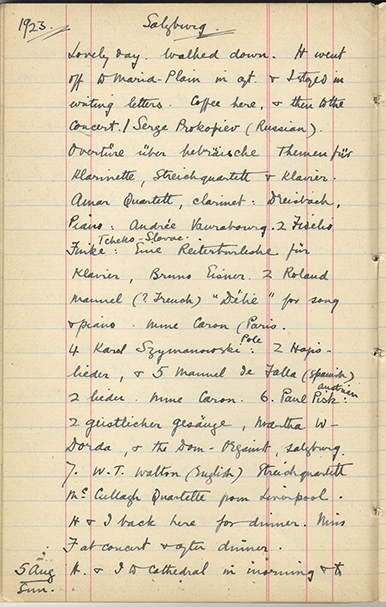 1923. Salzburg.
Lovely day. Walked down. H went
off to Maria-Plain in aft. & I stayed in
writing letters. Coffee here, & then to the
Concert. 1 Serge Prokopiev (Russian).
Overtüre über hebräische Themen für
Klarinette, Streichquartett & Klavier.
Amar Quartett, clarinet: Dreisbach,
Piano: Andrée Vaurabourg. 2 Fidelio
Tcheko-Slovac.
Finke: Eine Reiterburleske für
Klavier, Bruno Eisner. 2 Roland
Manuel (? French) "Délie" for song
& piano. Mme Caron (Paris.
Pole
4 Karol Szymanowski: 2 Hafis-
lieder, & 5 Manuel de Falla (Spanish)
austrian
2 lieder. Mme Caron. 6. Paul Pisk:
2 geistlicher gesänge, Martha W-
Dorda, & the Dom-Organist, Salzburg.
7. W.T. Walton (English) Streichquartett
Mc Cullagh Quartette from Liverpool.
H & I back here for dinner. Miss
F at concert & after dinner.
5 Aug H. & I to Cathedral in morning & to
Sun.